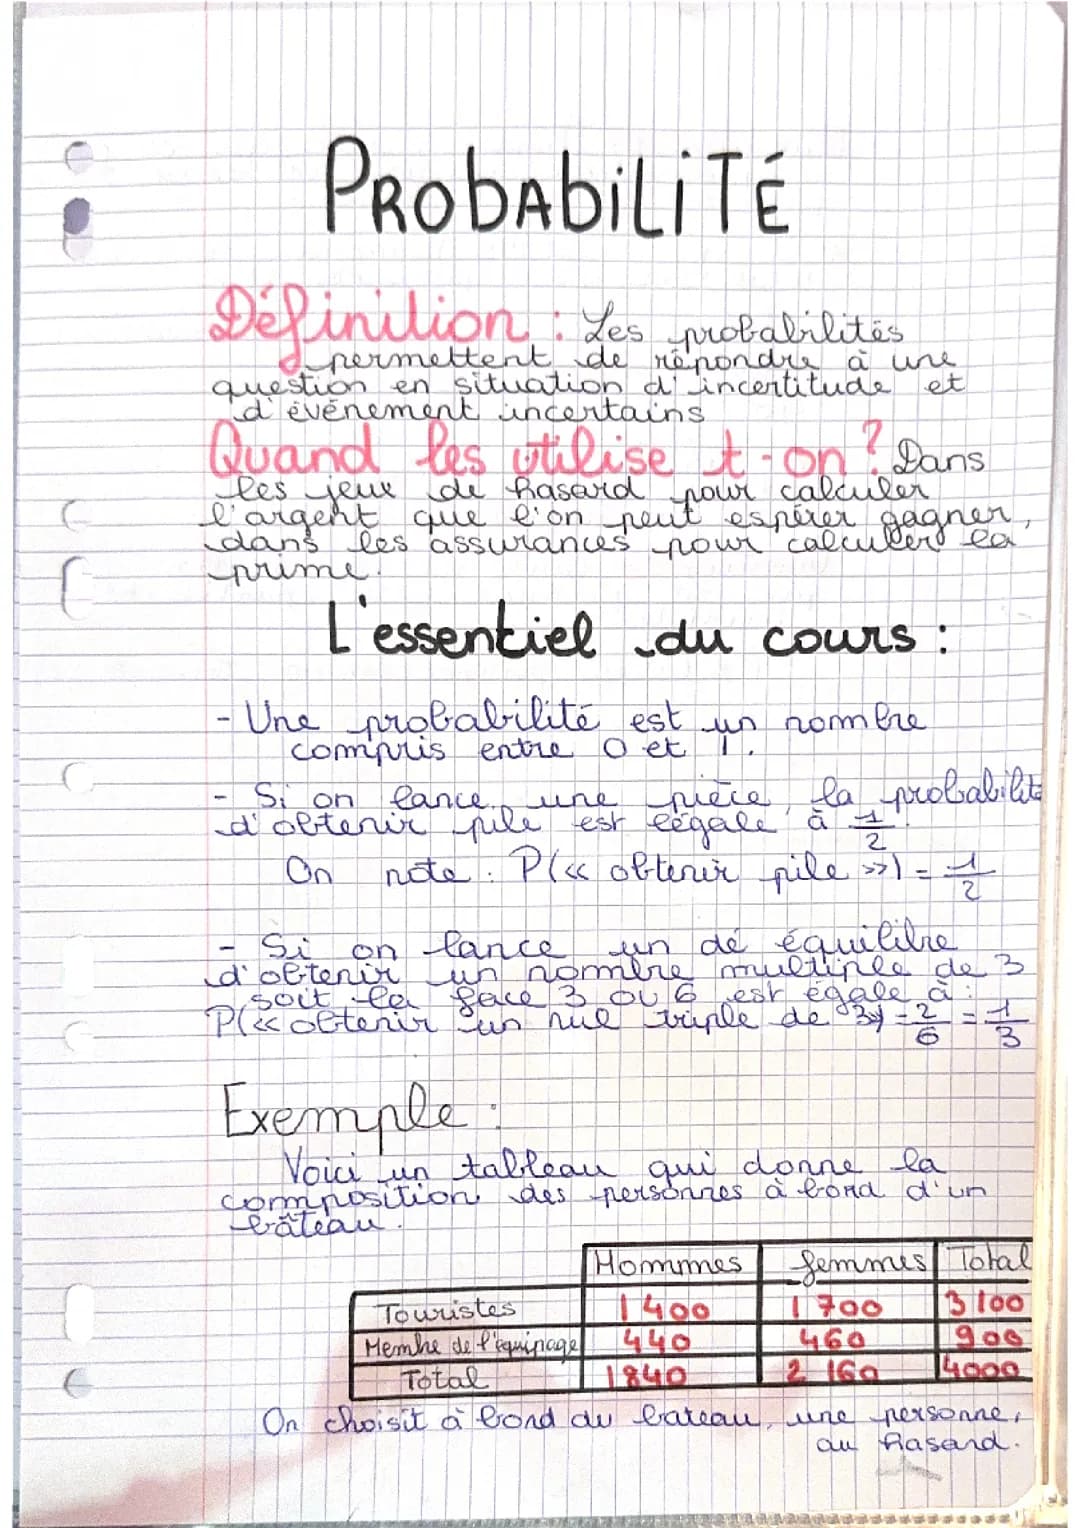 PRObAbiLiTÉ
Définition : Les probabilités
permettent de répondre à une
question en situation d'incertitude et
d'événement incertains
Quand les utilise t-on ? Dans
les jeux de hasard pour calculer
l'argent que l'on peut espérer gagner,
dans les assurances pour calculer la
prime.
L'essentiel du cours :
- Une probabilité est un nombre
compris entre 0 et 1.
- Si on lance une pièce, la probabilité
d'obtenir pile est légale à 1/2.
On note : P(<< obtenir pile >>) = 1/2
- Si on lance un dé équilibre
d'obtenir un nombre multiple de 3
soit la face 3 ou 6 est égale à :
P(<< obtenir un nul triple de 3>>) = 2/6 = 1/3
Exemple :
Voici un tableau qui donne la
composition des personnes à bord d'un
bâteau.
Hommes femmes Total
Touristes 1 400 1 700 3 100
Membre de l'équipage 440 460 900
Total 1840 2 160 4000
On choisit à bord du bateau, une personne,
au hasard.